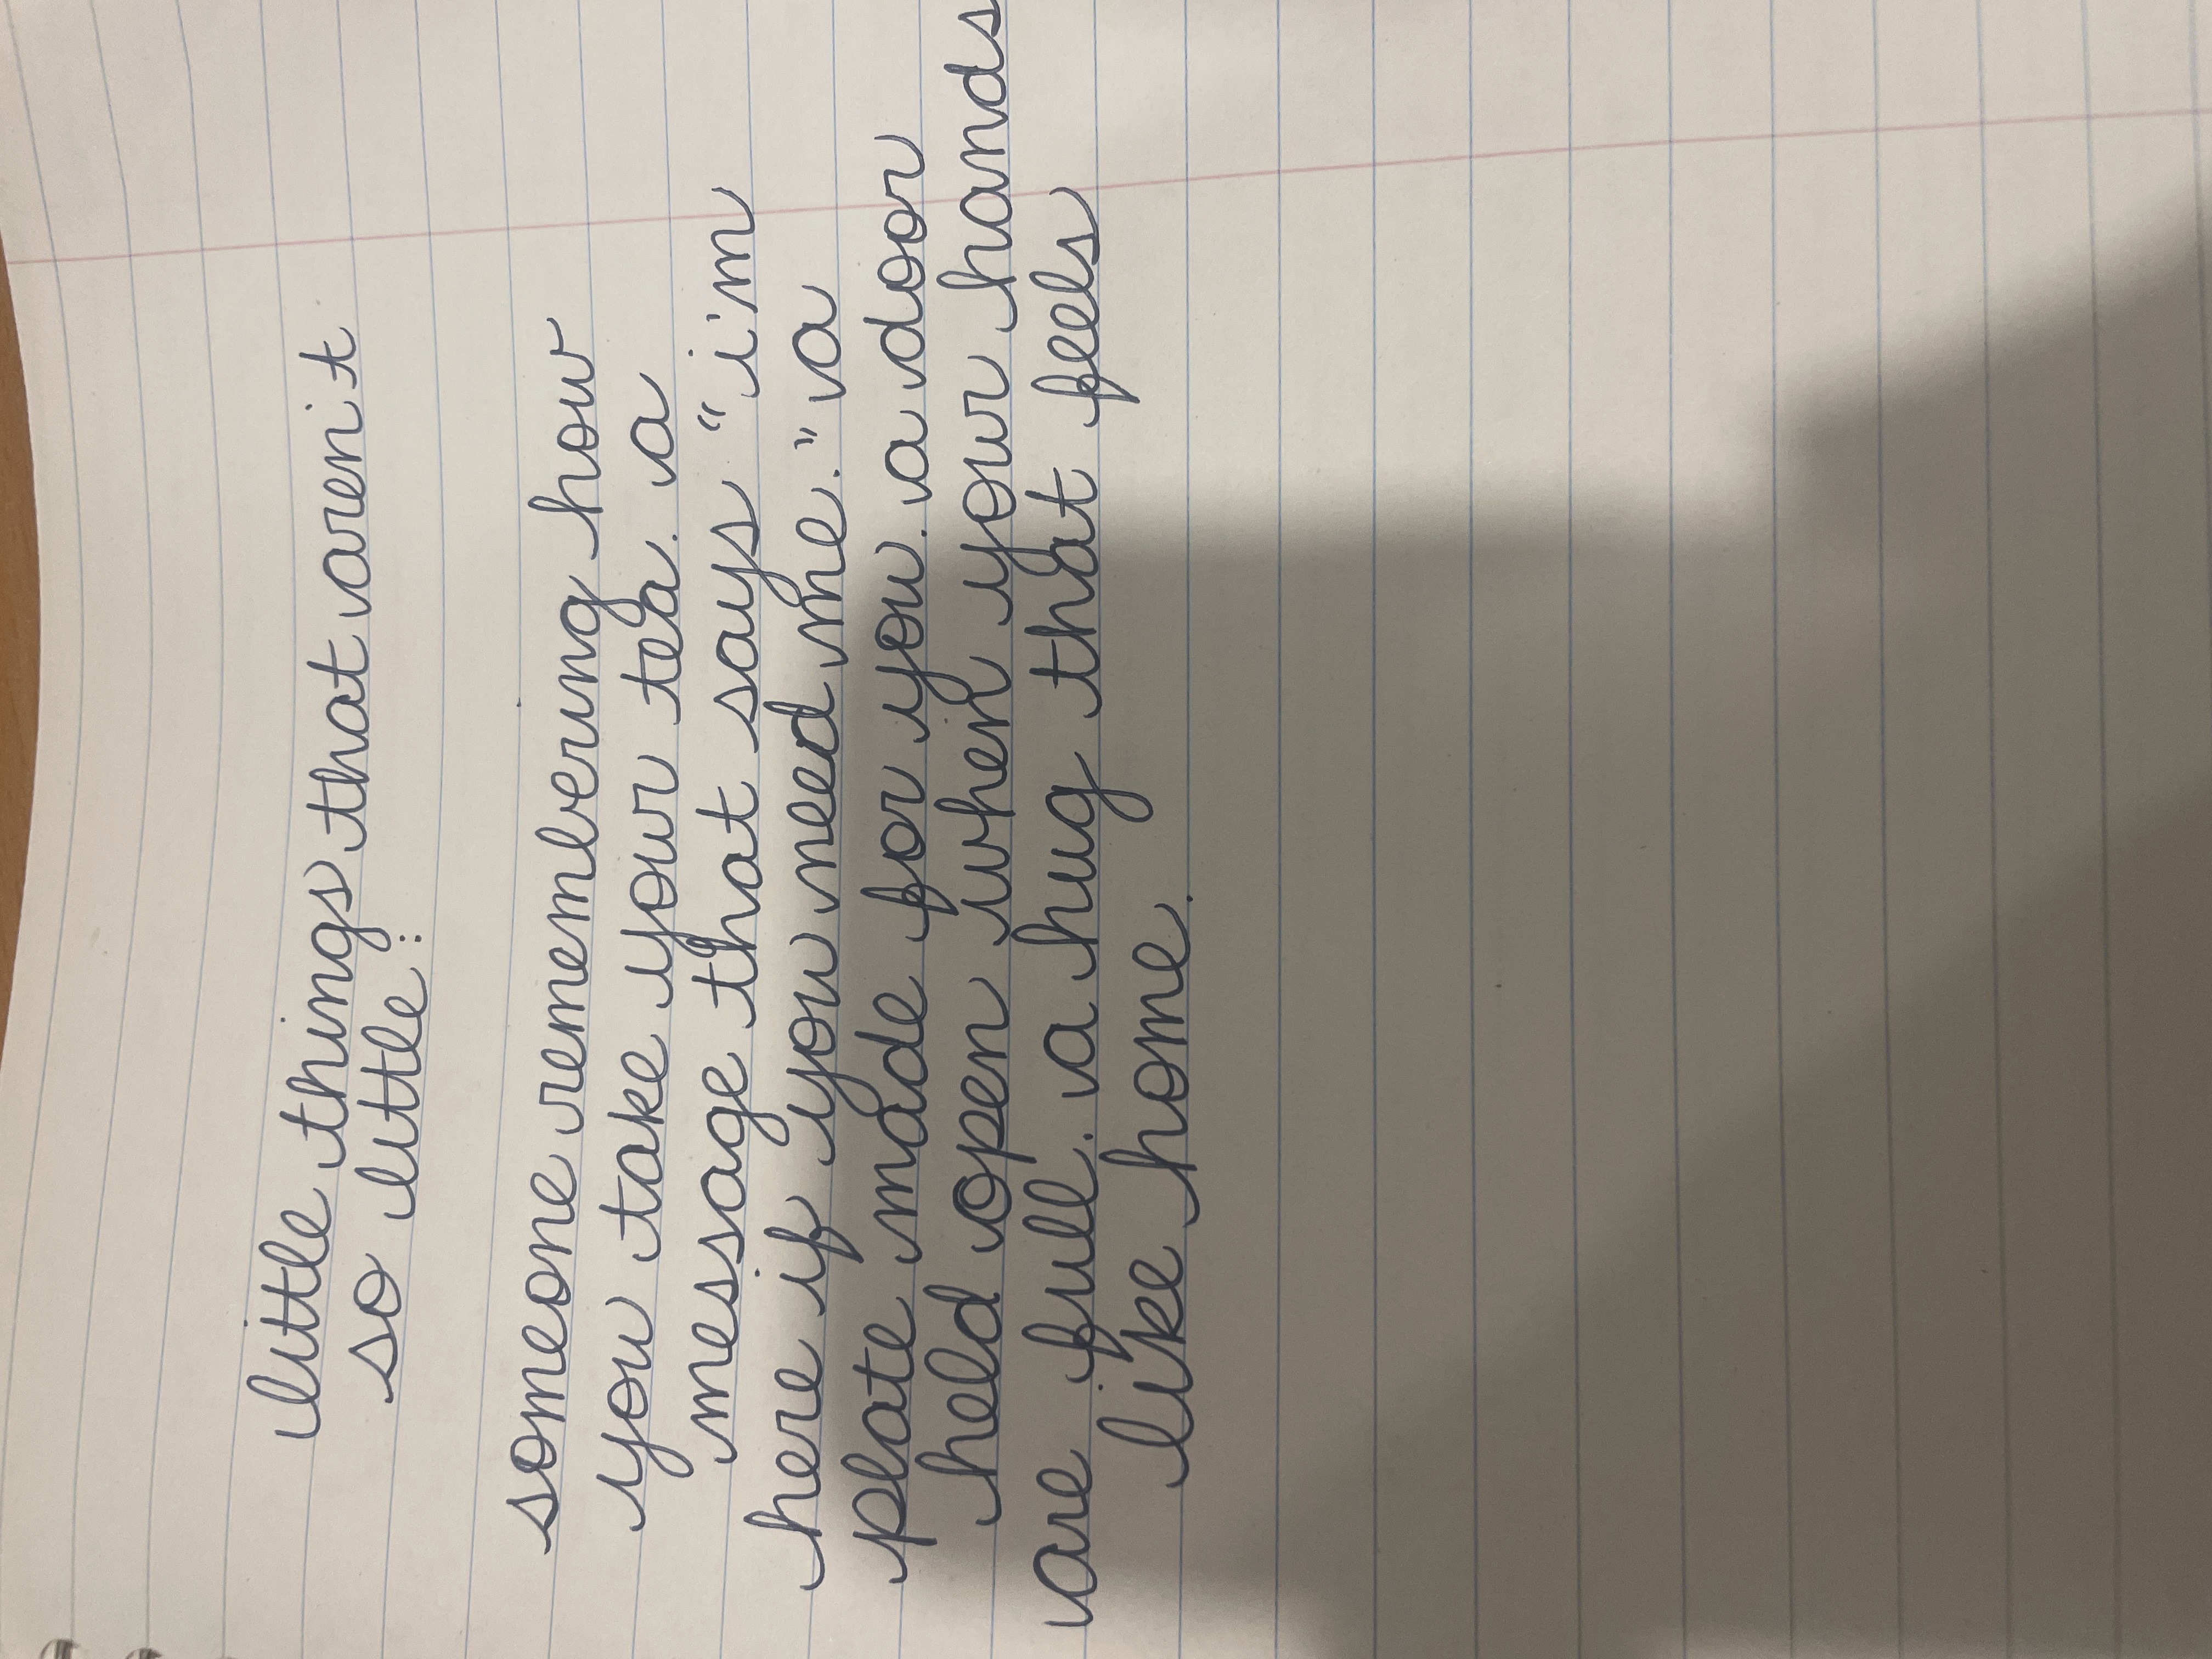 little things that aren't
so little:
someone remembering how
you take your tea. a
message that says "i'm
here if you need me." a
plate made for you. a door
held open when your hands
are full. a hug that feels
like home.